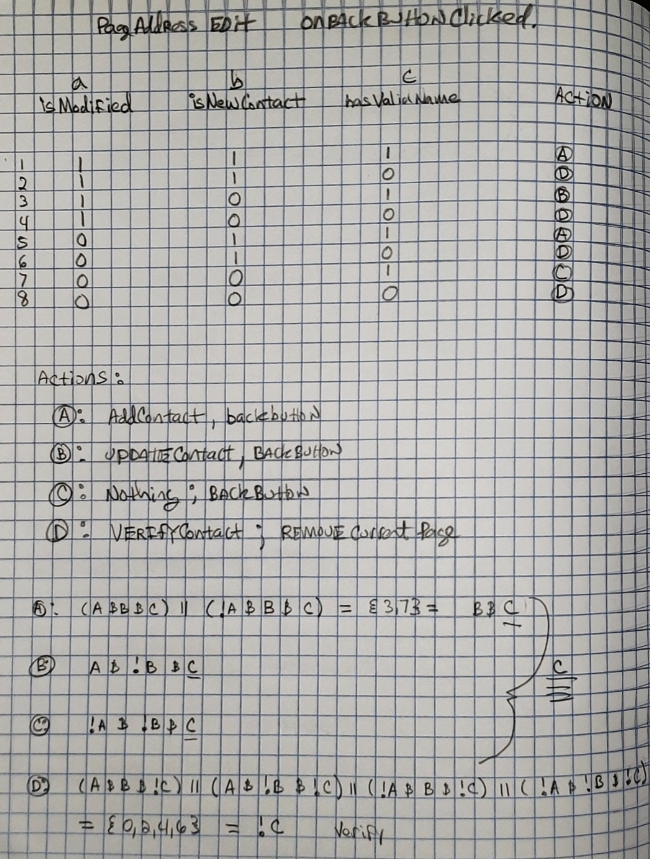 Pag Address Edit onBackButtonClicked.
a b c
isModified isNewContact hasValidName Action
1 1 1 1 A
2 1 1 0 D
3 1 0 1 B
4 1 0 0 D
5 0 1 1 A
6 0 1 0 D
7 0 0 1 C
8 0 0 0 D
Actions:
A: AddContact, backbutton
B: UPDATEContact, BackButton
C: Nothing; BackButton
D: VERIFYContact; REMOVE Current Page
A: (A & B & C) || (!A & B & C) = {3,7} = B & C
B: A & !B & C
C
C: !A & !B & C
D: (A & B & !C) || (A & !B & !C) || (!A & B & !C) || (!A & !B & !C)
= {0,2,4,6} = !C Verify